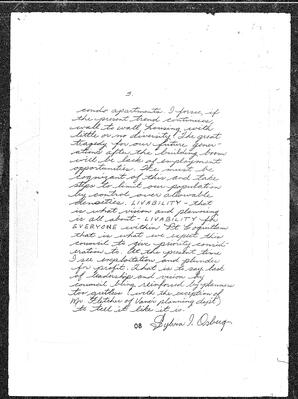 3.
condo apartments I forsee, if
the present trend continues,
wall to wall housing with
little or no diversity! The great
tragedy for our future gener-
ations after the building boom
will be lack of employment
opportunities. We must be
cognizant of this and take
steps to limit our population
by control over allowable
densities. LIVABILITY - that
is what vision and planning
is all about - LIVABILITY for
EVERYONE within Pt Coquitlam
that is what we expect this
council to give priority consid-
eration to. At the present time
I see exploitation and plunder
for profit. That is to say lack
of leadership and vision by
council being reinforced by planners
too gutless (with the exception of
Mr Fletcher of Vanc's planning dept)
to tell it like it is.
Sylvia I. Osberg
08